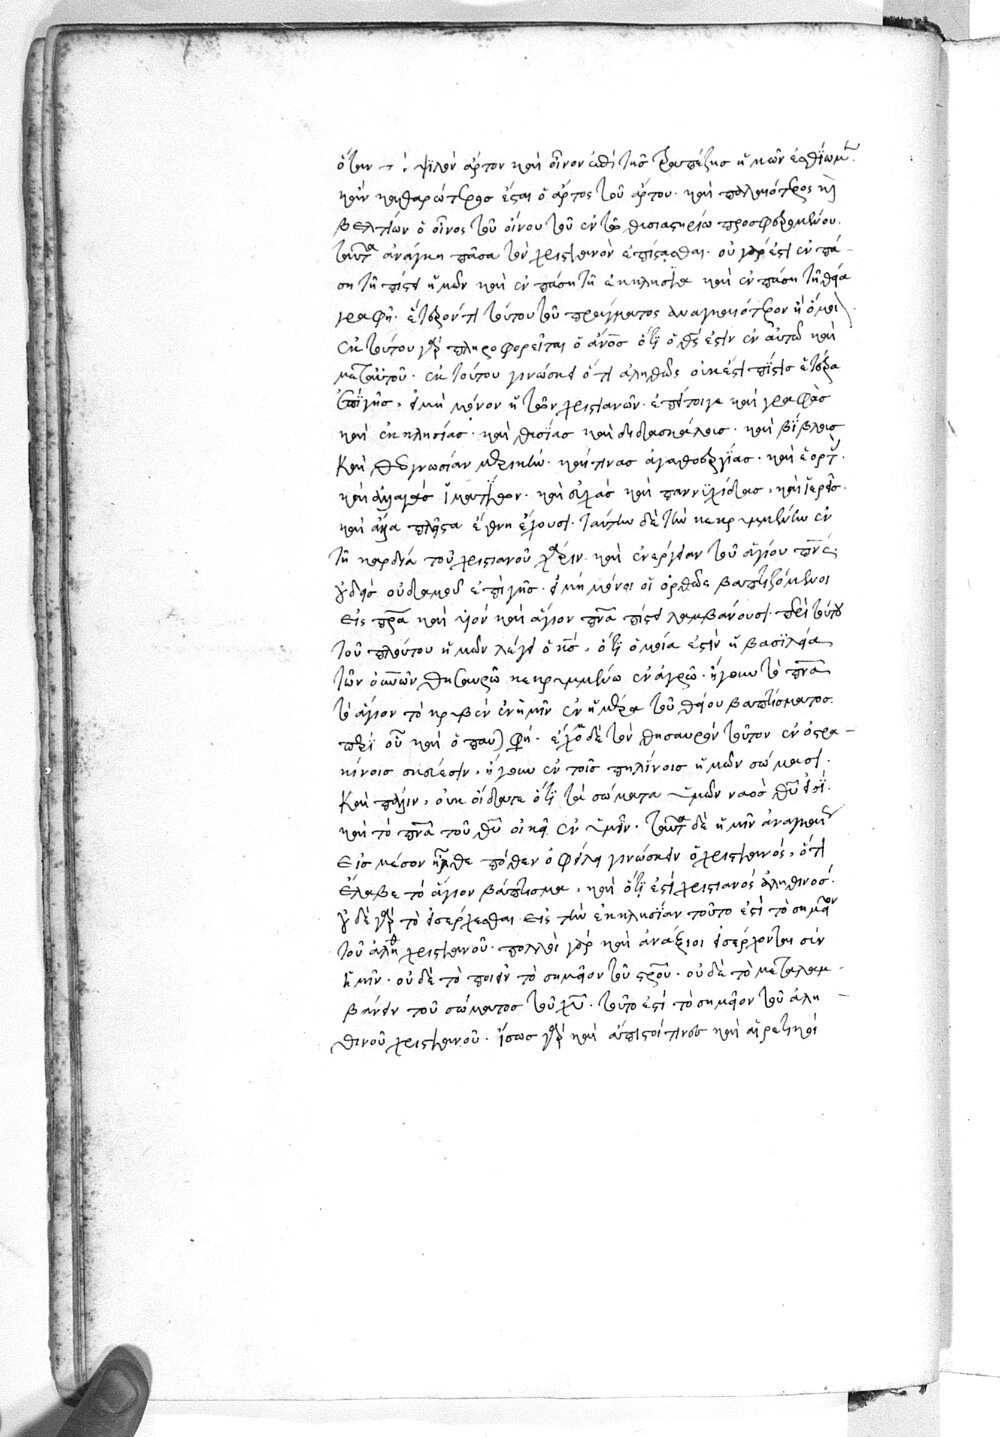 ὅταν ψιλὸν ἄρτον καὶ οἶνον ἐπὶ τῆς τραπέζης ἡμῶν ἐσθίωμ.
κἂν καθαρώτερος ἔσται ὁ ἄρτος τοῦ ἄρτου. καὶ παλαιότερος κ
βελτίων ὁ οἶνος τοῦ οἴνου τοῦ ἐν τῶ θυσιαστηρίω προσφερομένου.
ταῦτα ἀνάγκη πᾶσα τὸν χριστιανὸν ἐπίστασθαι. οὐ γάρ ἐστιν ἐν πά-
ση τῆ πίστει ἡμῶν καὶ ἐν πάση τῆ ἐκκλησία καὶ ἐν πάση τῆ θεία
γραφῆ. ἕτερόν τι τούτου τοῦ πράγματος ἀναγκαιότερον ἢ
ἐκ τούτου γὰρ πληροφορεῖται ὁ ἄνος ὅτι ὁ θς ἐστιν ἐν αὐτῶ καὶ
μετ' αὐτοῦ. ἐκ τούτου γινώσκει ὅτι ἀληθῶς οὐκ ἔστι πίστις ἑτέρα
ἐπὶ γῆς, εἰ μὴ μόνον ἡ τῶν χριστιανῶν. ἐπεί τοιγε καὶ γραφὰς
καὶ ἐκκλησίας. καὶ θυσίας καὶ διδασκάλους. καὶ βίβλους
καὶ θεογνωσίαν μερικὴν. καί τινας ἀγαθοεργίας. καὶ ἑορτ.
καὶ ἀλλαγὰς ἱματίων. καὶ εὐχὰς καὶ παννυχίδας, καὶ ἱερεῖς.
καὶ ἄλλα πλεῖστα ἔθνη ἔχουσι. ταύτην δὲ τὴν κεκρυμμένην ἐν
τῆ καρδία τοῦ χριστιανοῦ χάριν καὶ ἐνέργειαν τοῦ ἁγίου πνς
οὐδεὶς οὐδαμοῦ ἐπὶ γῆς. εἰ μὴ μόνοι οἱ ὀρθῶς βαπτιζόμενοι
εἰς πρα καὶ υἱὸν καὶ ἅγιον πνα πίστει λαμβάνουσι. περὶ τούτου
τοῦ πλούτου ἡμῶν λέγει ὁ κς, ὅτι ὁμοία ἐστὶν ἡ βασιλεία
τῶν οὐνῶν θησαυρῶ κεκρυμμένω ἐν ἀγρῶ. ἤγουν τὸ πνα
τὸ ἅγιον τὸ κρυβὲν ἐν ἡμῖν ἐν ἡμέρα τοῦ θείου βαπτίσματος.
περὶ οὗ καὶ ὁ παῦ φη. ἔχομεν δὲ τὸν θησαυρὸν τοῦτον ἐν ὀστρα-
κίνοις σκεύεσιν, ἤγουν ἐν τοῖς πηλίνοις ἡμῶν σώμασι.
καὶ πάλιν, οὐκ οἴδατε ὅτι τὰ σώματα ὑμῶν ναὸς θυ εἰσὶ.
καὶ τὸ πνα τοῦ θυ οἰκεῖ ἐν ὑμῖν. ταῦτα δὲ ἡμῖν ἀναγκαῖ
εἰς μέσον πόθεν ὀφείλει γινώσκειν ὁ χριστιανός, ὅτι
ἔλαβε τὸ ἅγιον βάπτισμα, καὶ ὅτι ἐστὶ χριστιανὸς ἀληθινός.
οὐδὲ γὰρ τὸ εἰσέρχεσθαι εἰς τὴν ἐκκλησίαν τοῦτο ἐστὶ τὸ σημεῖον
τοῦ ἀληθ χριστιανοῦ. πολλοὶ γὰρ καὶ ἀνάξιοι εἰσέρχονται σὺν
ἡμῖν. οὐδὲ τὸ ποιεῖν τὸ σημεῖον τοῦ στροῦ. οὐδὲ τὸ μεταλαμ-
βάνειν τοῦ σώματος τοῦ χυ. τοῦτο ἐστὶ τὸ σημεῖον τοῦ ἀλη-
θινοῦ χριστιανοῦ. ἴσως γὰρ καὶ ἄπιστοί τινες καὶ αἱρετικοὶ